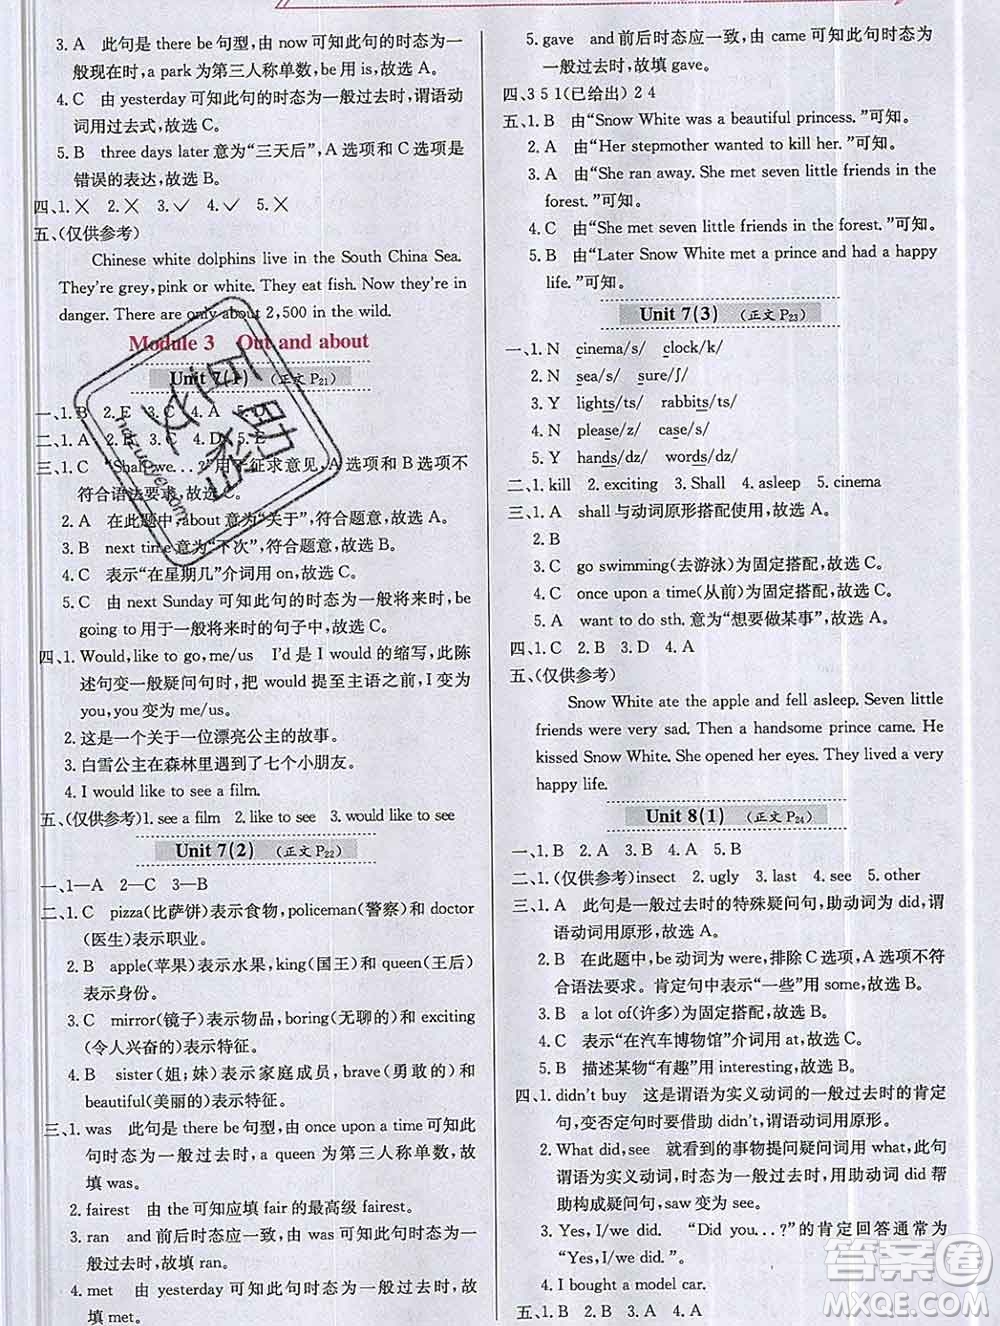 3. A　此句是 there be 句型,由 now 可知此句的时态为一
般现在时,a park 为第三人称单数,be 用 is,故选 A。
4. C　由 yesterday 可知此句的时态为一般过去时,谓语动
词用过去式,故选 C。
5. B　three days later 意为“三天后”,A 选项和 C 选项是
错误的表达,故选 B。
四、1. ✕　2. ✕　3. ✓　4. ✓　5. ✕
五、(仅供参考)
Chinese white dolphins live in the South China Sea.
They're grey, pink or white. They eat fish. Now they're in
danger. There are only about 2,500 in the wild.
Module 3　Out and about
Unit 7(1)　(正文 P21)
一、1. B　2. E　3. C　4. A　5. D
二、1. A　2. B　3. C　4. D　5. E
三、1. C　“Shall we...?”用于征求意见,A 选项和 B 选项不
符合语法要求,故选 C。
2. A　在此题中,about 意为“关于”,符合题意,故选 A。
3. B　next time 意为“下次”,符合题意,故选 B。
4. C　表示“在星期几”介词用 on,故选 C。
5. C　由 next Sunday 可知此句的时态为一般将来时,be
going to 用于一般将来时的句子中,故选 C。
四、1. Would, like to go, me/us　I'd 是 I would 的缩写,此陈
述句变一般疑问句时,把 would 提至主语之前,I 变为
you,you 变为 me/us。
2. 这是一个关于一位漂亮公主的故事。
3. 白雪公主在森林里遇到了七个小朋友。
4. I would like to see a film.
五、(仅供参考)1. see a film　2. like to see　3. would like to see
Unit 7(2)　(正文 P22)
一、1—A　2—C　3—B
二、1. C　pizza(比萨饼)表示食物,policeman(警察)和 doctor
(医生)表示职业。
2. B　apple(苹果)表示水果,king(国王)和 queen(王后)
表示身份。
3. C　mirror(镜子)表示物品,boring(无聊的)和 exciting
(令人兴奋的)表示特征。
4. B　sister(姐;妹)表示家庭成员,brave(勇敢的)和
beautiful(美丽的)表示特征。
三、1. was　此句是 there be 句型,由 once upon a time 可知此
句时态为一般过去时,a queen 为第三人称单数,故
填 was。
2. fairest　由 the 可知应填 fair 的最高级 fairest。
3. ran　and 前后时态应一致,由 was 可知此句时态为一
般过去时,故填 ran。
4. met　由 yesterday 可知此句时态为一般过去时,故
填 met。
5. gave　and 前后时态应一致,由 came 可知此句时态为
一般过去时,故填 gave。
四、3 5 1(已给出) 2 4
五、1. B　由“Snow White was a beautiful princess.”可知。
2. A　由“Her stepmother wanted to kill her.”可知。
3. A　由“She ran away. She met seven little friends in the
forest.”可知。
4. C　由“She met seven little friends in the forest.”可知。
5. B　由“Later Snow White met a prince and had a happy
life.”可知。
Unit 7(3)　(正文 P23)
一、1. N　cinema/s/　clock/k/
2. N　sea/s/　sure/ʃ/
3. Y　lights/ts/　rabbits/ts/
4. N　please/z/　case/s/
5. Y　hands/dz/　words/dz/
二、1. kill　2. exciting　3. Shall　4. asleep　5. cinema
三、1. A　shall 与动词原形搭配使用,故选 A。
2. B
3. C　go swimming(去游泳)为固定搭配,故选 C。
4. C　once upon a time(从前)为固定搭配,故选 C。
5. A　want to do sth. 意为“想要做某事”,故选 A。
四、1. C　2. B　3. D　4. A
五、(仅供参考)
Snow White ate the apple and fell asleep. Seven little
friends were very sad. Then a handsome prince came. He
kissed Snow White. She opened her eyes. They lived a very
happy life.
Unit 8(1)　(正文 P24)
一、1. B　2. A　3. B　4. A　5. B
二、1. (仅供参考)insect　2. ugly　3. last　4. see　5. other
三、1. A　此句是一般过去时的特殊疑问句,助动词为 did,谓
语动词用原形,故选 A。
2. B　在此题中,be 动词为 were,排除 C 选项,A 选项不符
合语法要求。肯定句中表示“一些”用 some,故选 B。
3. B　a lot of(许多)为固定搭配,故选 B。
4. C　表示“在汽车博物馆”介词用 at,故选 C。
5. B　描述某物“有趣”用 interesting,故选 B。
四、1. didn't buy　这是谓语为实义动词的一般过去时的肯定
句,变否定句时要借助 didn't,谓语动词用原形。
2. What did, see　就看到的事物提问疑问词用 what,此句
谓语为实义动词,时态为一般过去时,用助动词 did 帮
助构成疑问句,saw 变为 see。
3. Yes, I/we did.　“Did you...?”的肯定回答通常为
“Yes, I/we did.”。
4. I bought a model car.
五、1. B　2. B　3. A　4. A
答案圈
MXQE.COM